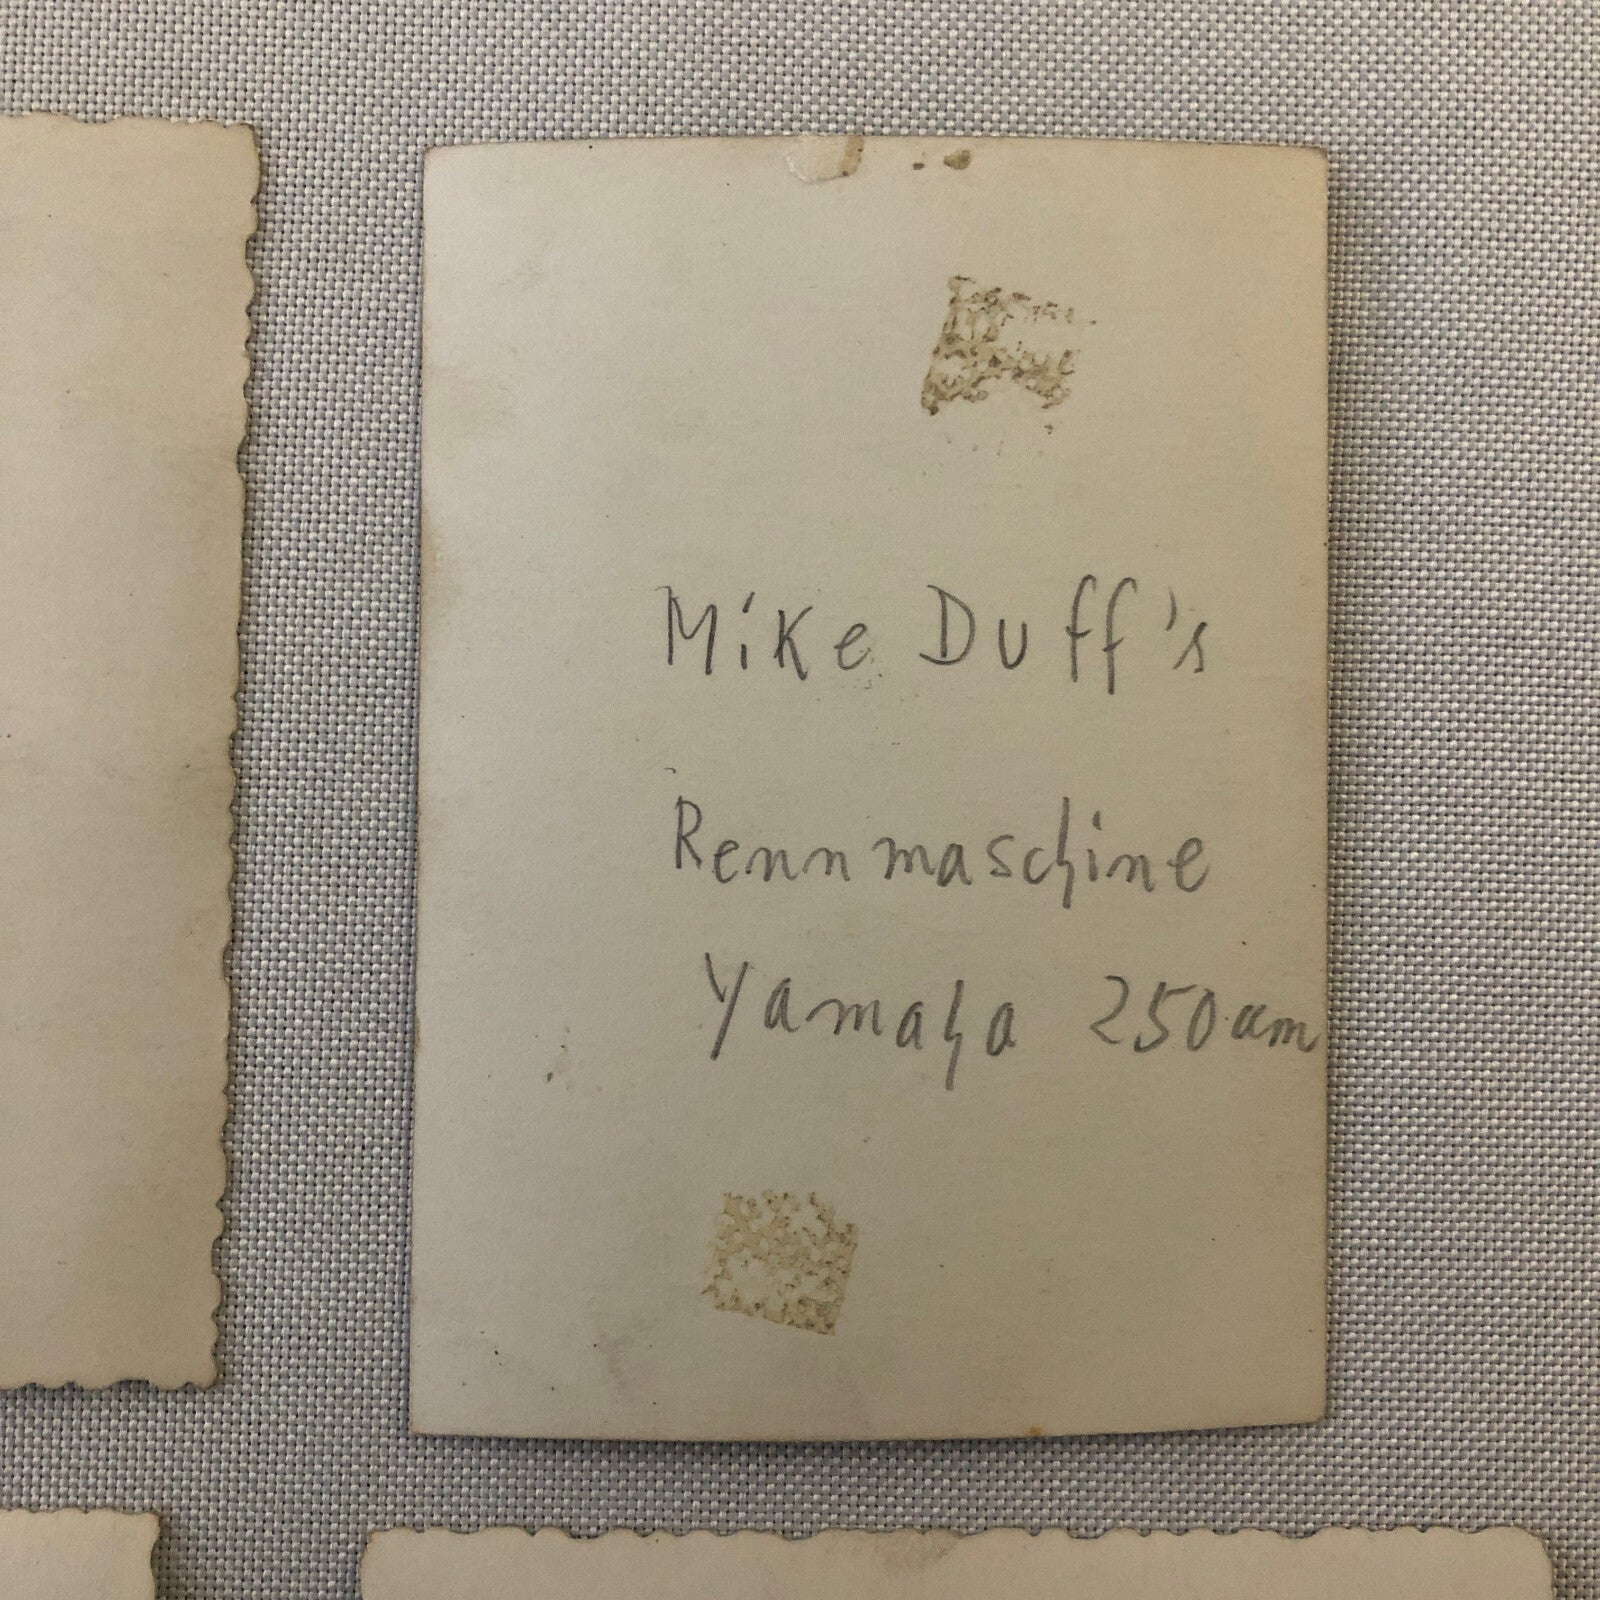 Mike Duff's
Rennmaschine
Yamaha 250ccm